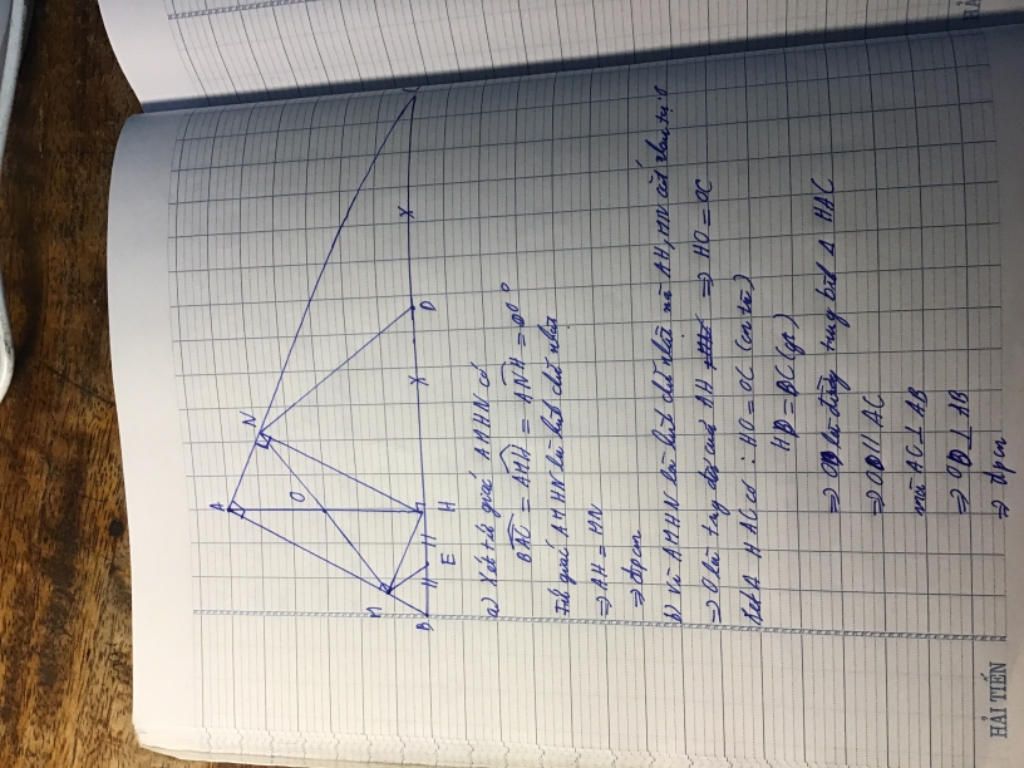 A
N
O
M
B
E
H
D
a) Xét tứ giác AMHN có
BAC = AMH = ANH = 90°
tứ giác AMHN là hình chữ nhật
⇒ AH = MN
⇒ đpcm
b) Vì AMHN là hình chữ nhật mà AH, MN cắt nhau tại O
⇒ O là của AH ⇒ HO = OC
Xét Δ HAC có : HO = OC (cmtrên)
HD = DC (gt)
⇒ OD là đường trung bình Δ HAC
⇒ OD // AC
mà AC ⊥ AB
⇒ OD ⊥ AB
⇒ đpcm
HẢI TIẾN